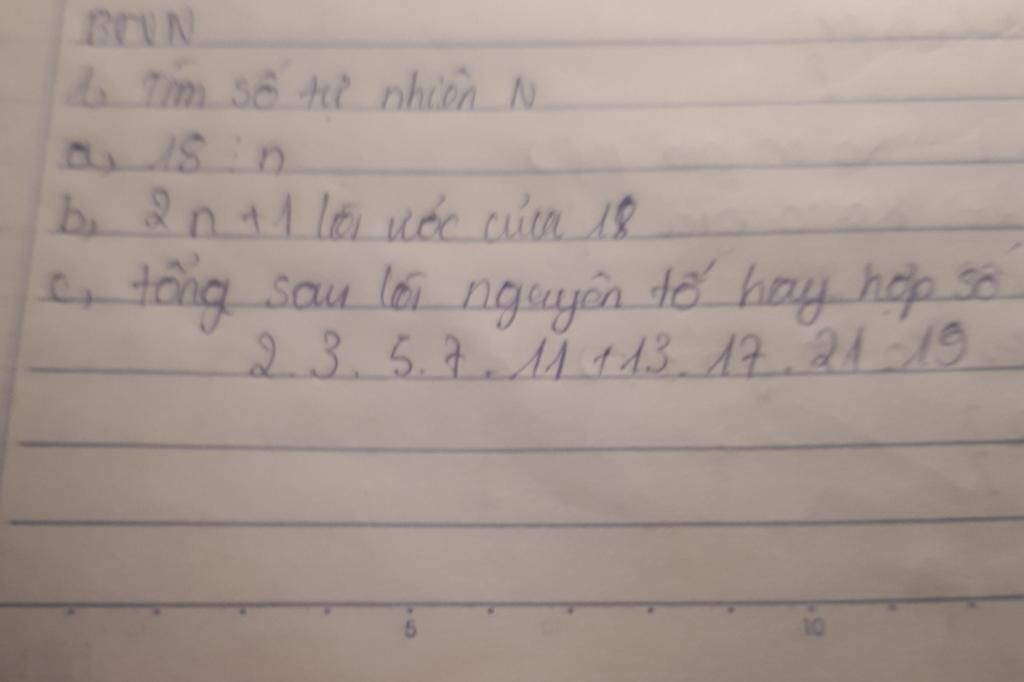 BTVN
1, Tìm số tự nhiên N
a, 15 ⋮ n
b, 2n + 1 là ước của 18
c, tổng sau là nguyên tố hay hợp số
2. 3. 5. 7. 11 + 13. 17. 21 . 19
5 10